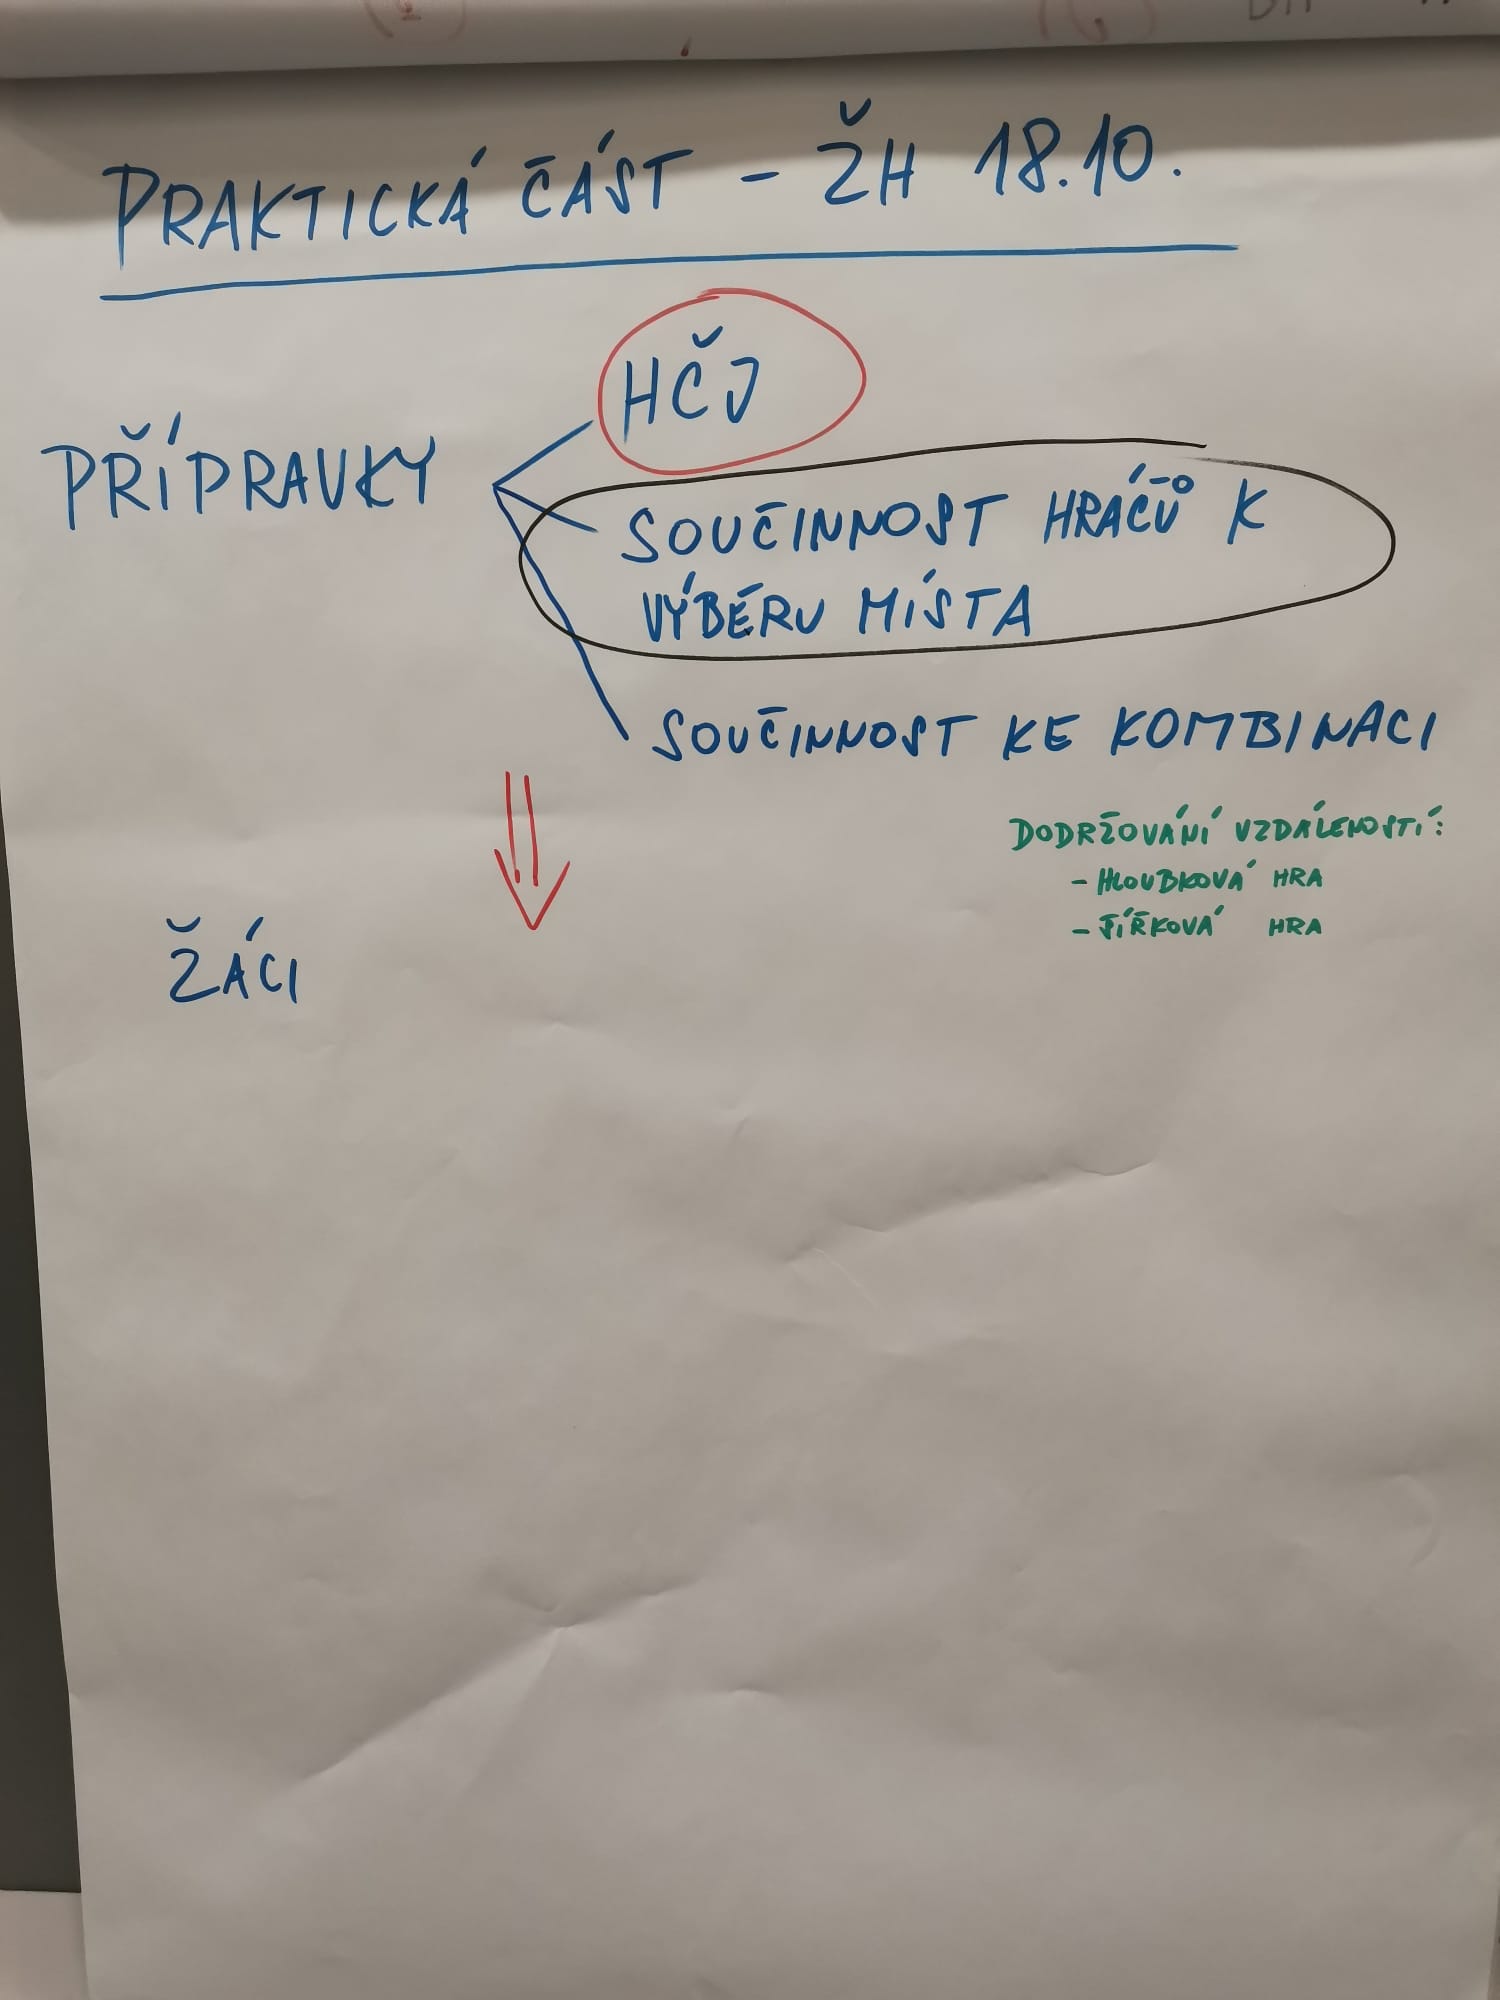 PRAKTICKÁ ČÁST - ŽH 18.10.
HČJ
PŘÍPRAVKY
SOUČINNOST HRÁČŮ K
VÝBĚRU MÍSTA
SOUČINNOST KE KOMBINACI
DODRŽOVÁNÍ VZDÁLENOSTÍ:
- HLOUBKOVÁ HRA
- ŠÍŘKOVÁ HRA
ŽÁCI